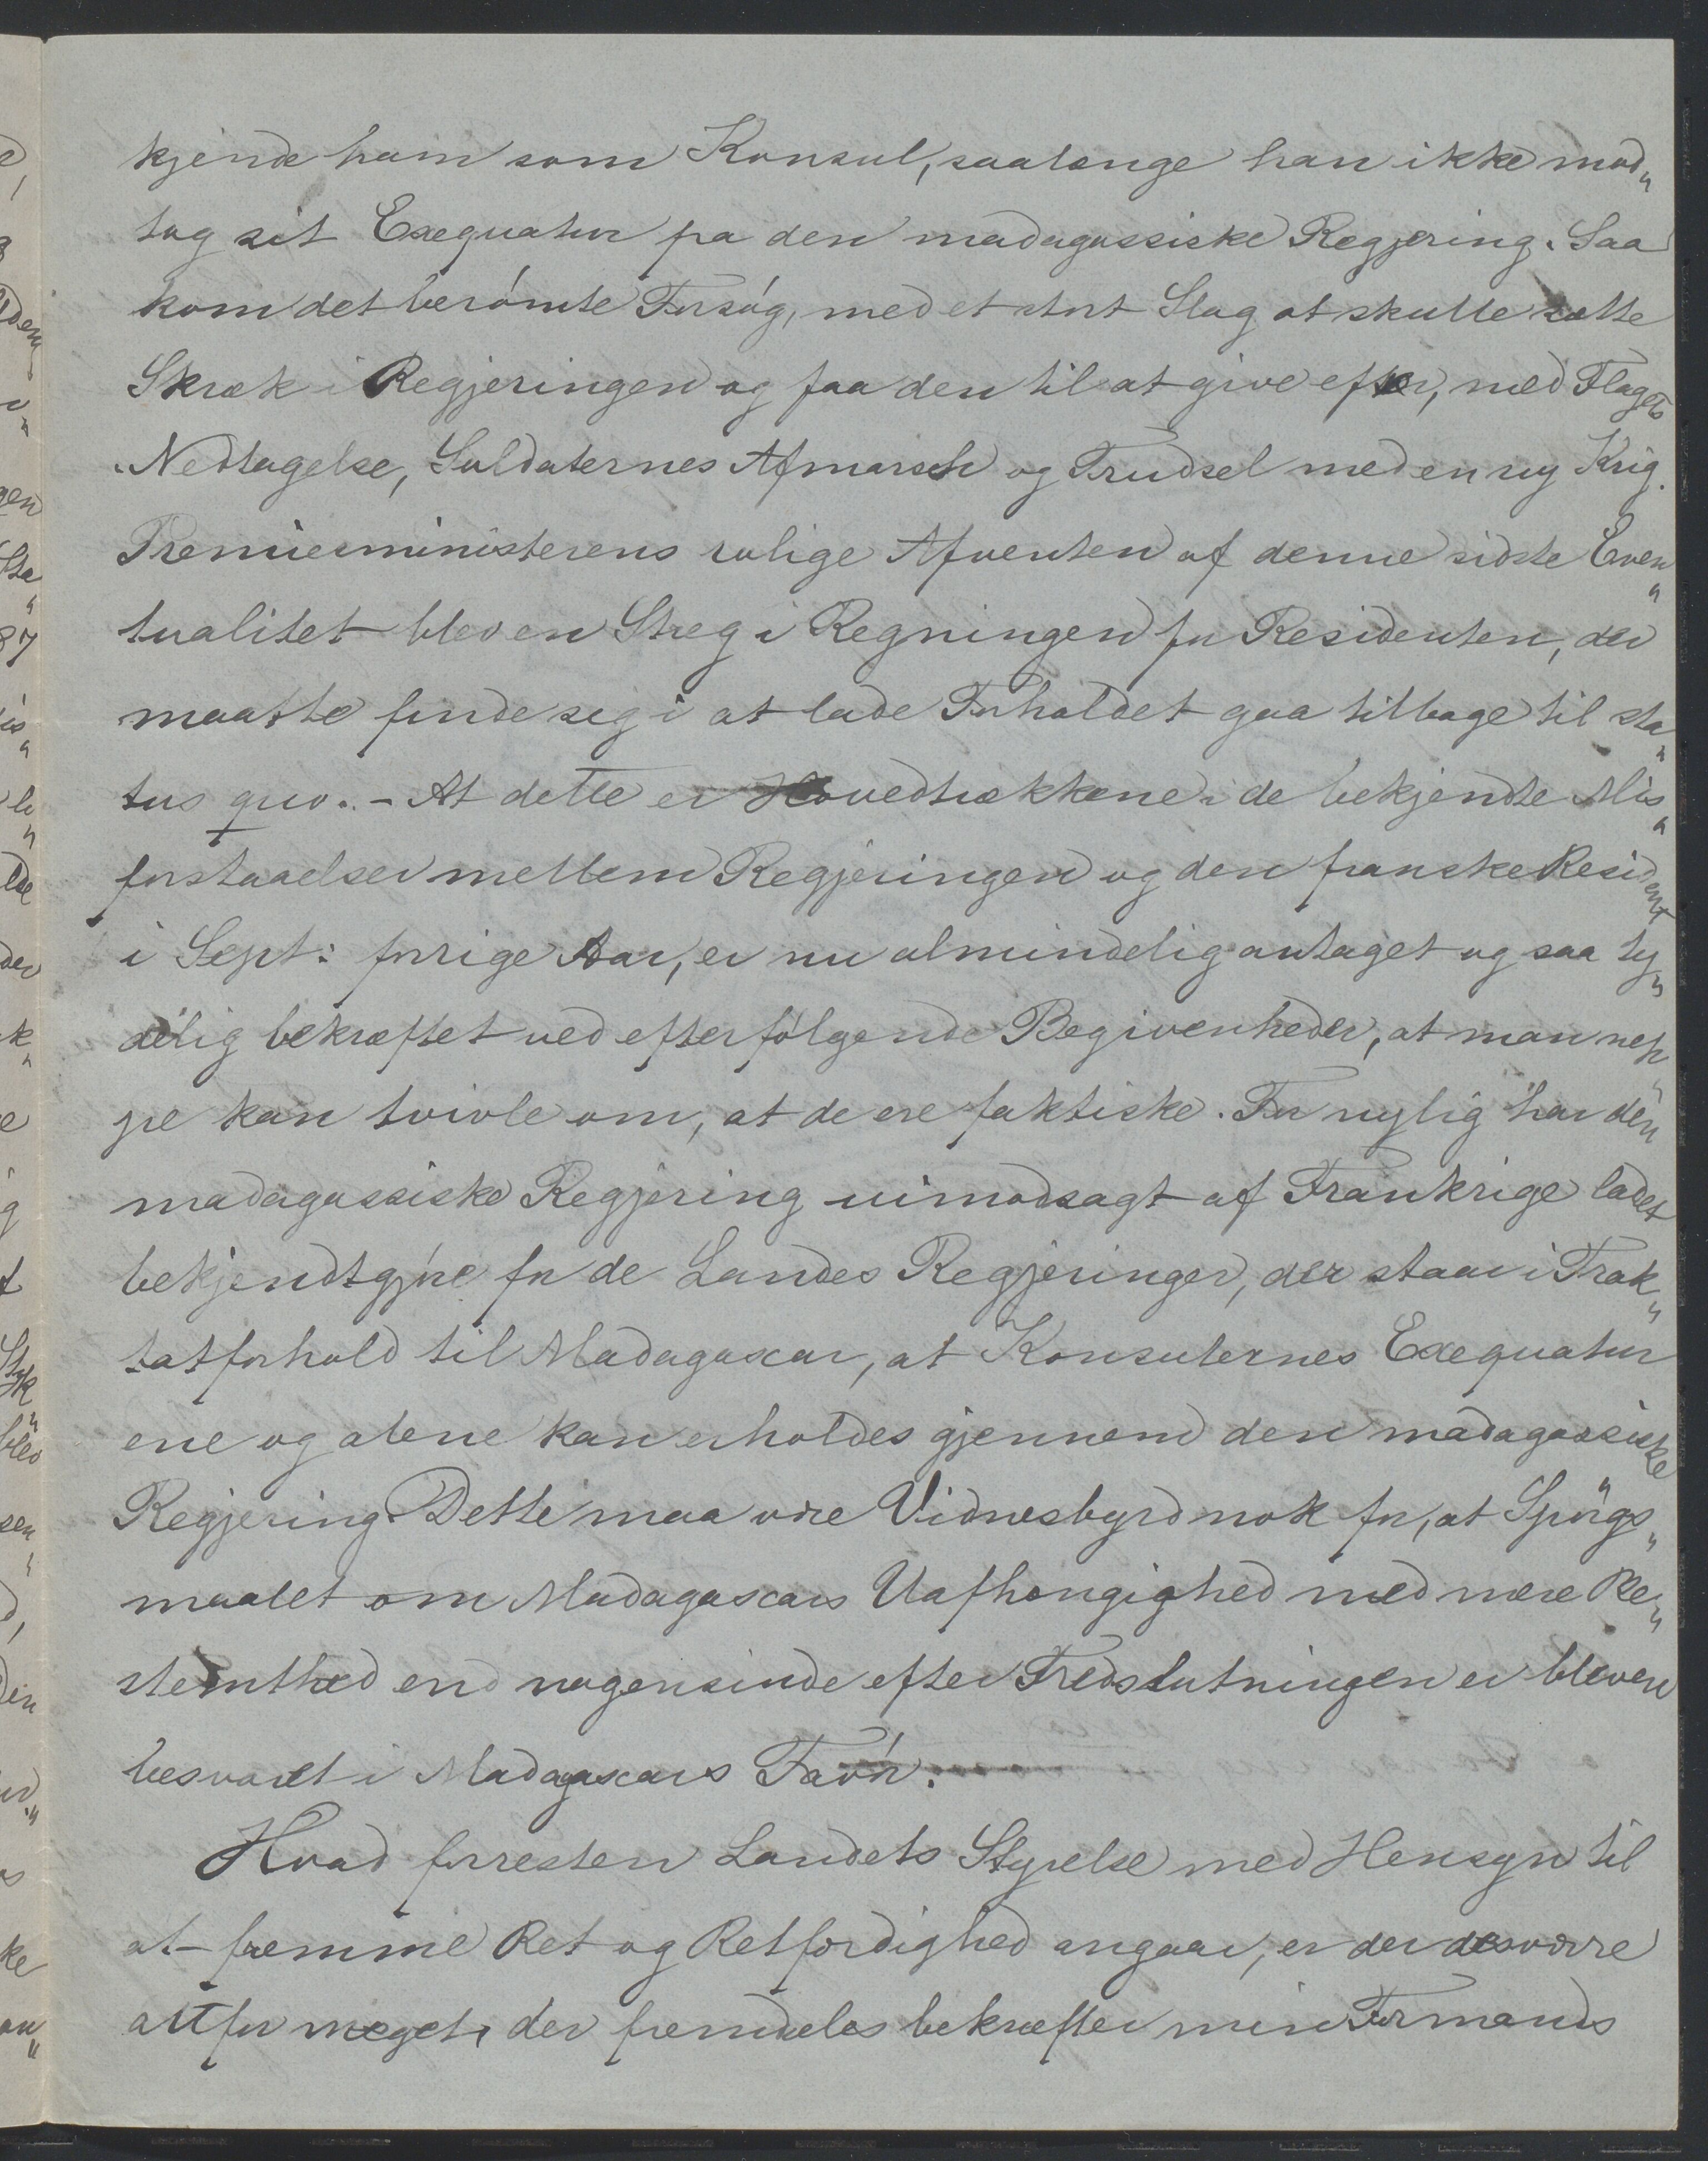 kjende ham som Konsul, saalænge han ikke mod„
tog sit Exequatur fra den madagassiske Regjering. Saa
kom det berømte Forsøg, med et stort Slag at skulle sætte
Skræk i Regjeringen og faa den til at give efter, med Flagets
Nedtagelse, Soldaternes Afmarsch og Trudsel med en ny Krig.
Premierministerens rolige Afventen af denne sidste Even„
tualitet blev en Streg i Regningen for Residenten, der
maatte finde sig i at lade Forholdet gaa tilbage til sta„
tus quo. - At dette er Hovedtrækkene i de bekjendte Mis„
forstaaelser mellem Regjeringen og den franske Resident
i Sept: forrige Aar, er nu almindelig antaget og saa ty„
delig bekræftet ved efterfølgende Begivenheder, at man nep„
pe kan tvivle om, at de ere faktiske. For nylig har den
madagassiske Regjering uimodsagt af Frankrige ladet
bekjendtgjøre for de Landes Regjeringer, der staar i Trak„
tatforhold til Madagascar, at Konsulernes Exequatur
ene og alene kan erholdes gjennem den madagassiske
Regjering. Dette maa være Vidnesbyrd nok for, at Spørgs„
maalet om Madagascars Uafhængighed med mere Be„
stemthed end nogensinde efter Fredslutningen er bleven
besvaret i Madagascars Favør.
Hvad forresten Landets Styrelse med Hensyn til
at fremme Ret og Retfærdighed angaar, er der desværre
altfor meget, der fremdeles bekræfter min Formands